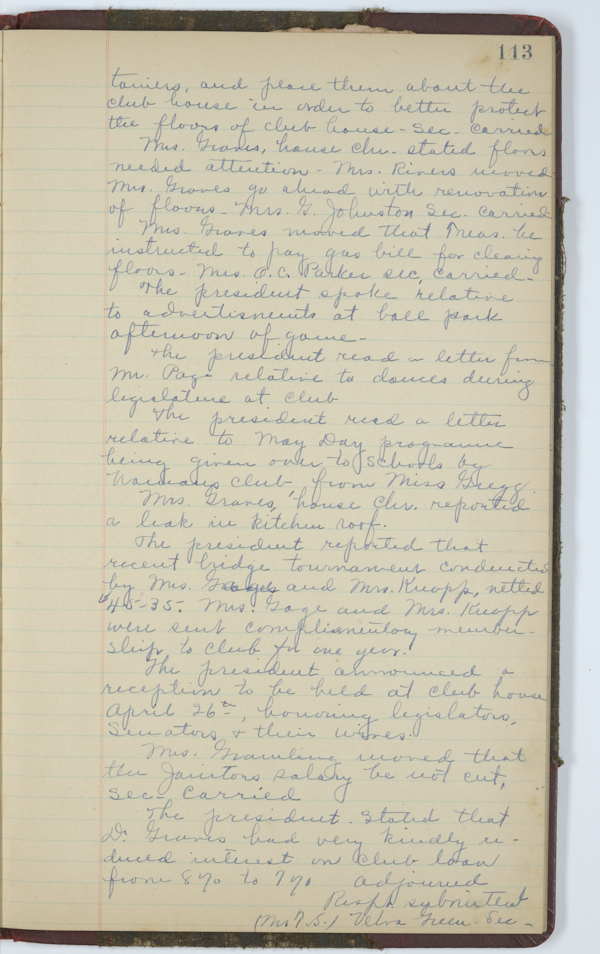 113
tainers, and place them about the
club house in order to better protect
the floors of club house - Sec. Carried
Mrs. Graves, house Chr. stated floors
needed attention - Mrs. Rivers moved
Mrs. Graves go ahead with renovation
of floors - Mrs. G. Johnston Sec. Carried
Mrs. Graves moved that Treas. be
instructed to pay gas bill for cleaning
floors - Mrs. O.C. Parker sec, carried -
The president spoke relative
to advertisments at ball park
afternoon of game -
The president read a letter from
Mr. Page relative to dances during
legislature at club
The president read a letter
relative to May Day programme
being given over to schools by
Womans Club, from Miss Gregg.
Mrs. Graves, house Chr. reported
a leak in kitchen roof.
The president reported that
recent bridge tournament conducted
by Mrs. Gage and Mrs. Knopp, netted
$45.35. Mrs Gage and Mrs. Knopp
were sent complimentary member-
ship to club for one year.
The president announced a
reception to be held at club house
April 26th, honoring legislators,
Senators, & their wives.
Mrs. Gramling moved that
the Janitors salary be not cut,
Sec - Carried
The president stated that
Dr. Graves had very kindly re-
duced interest on club loan
from 8% to 7% adjourned
Resp. submitted
(Mrs T.S.) Velva Green - Sec -